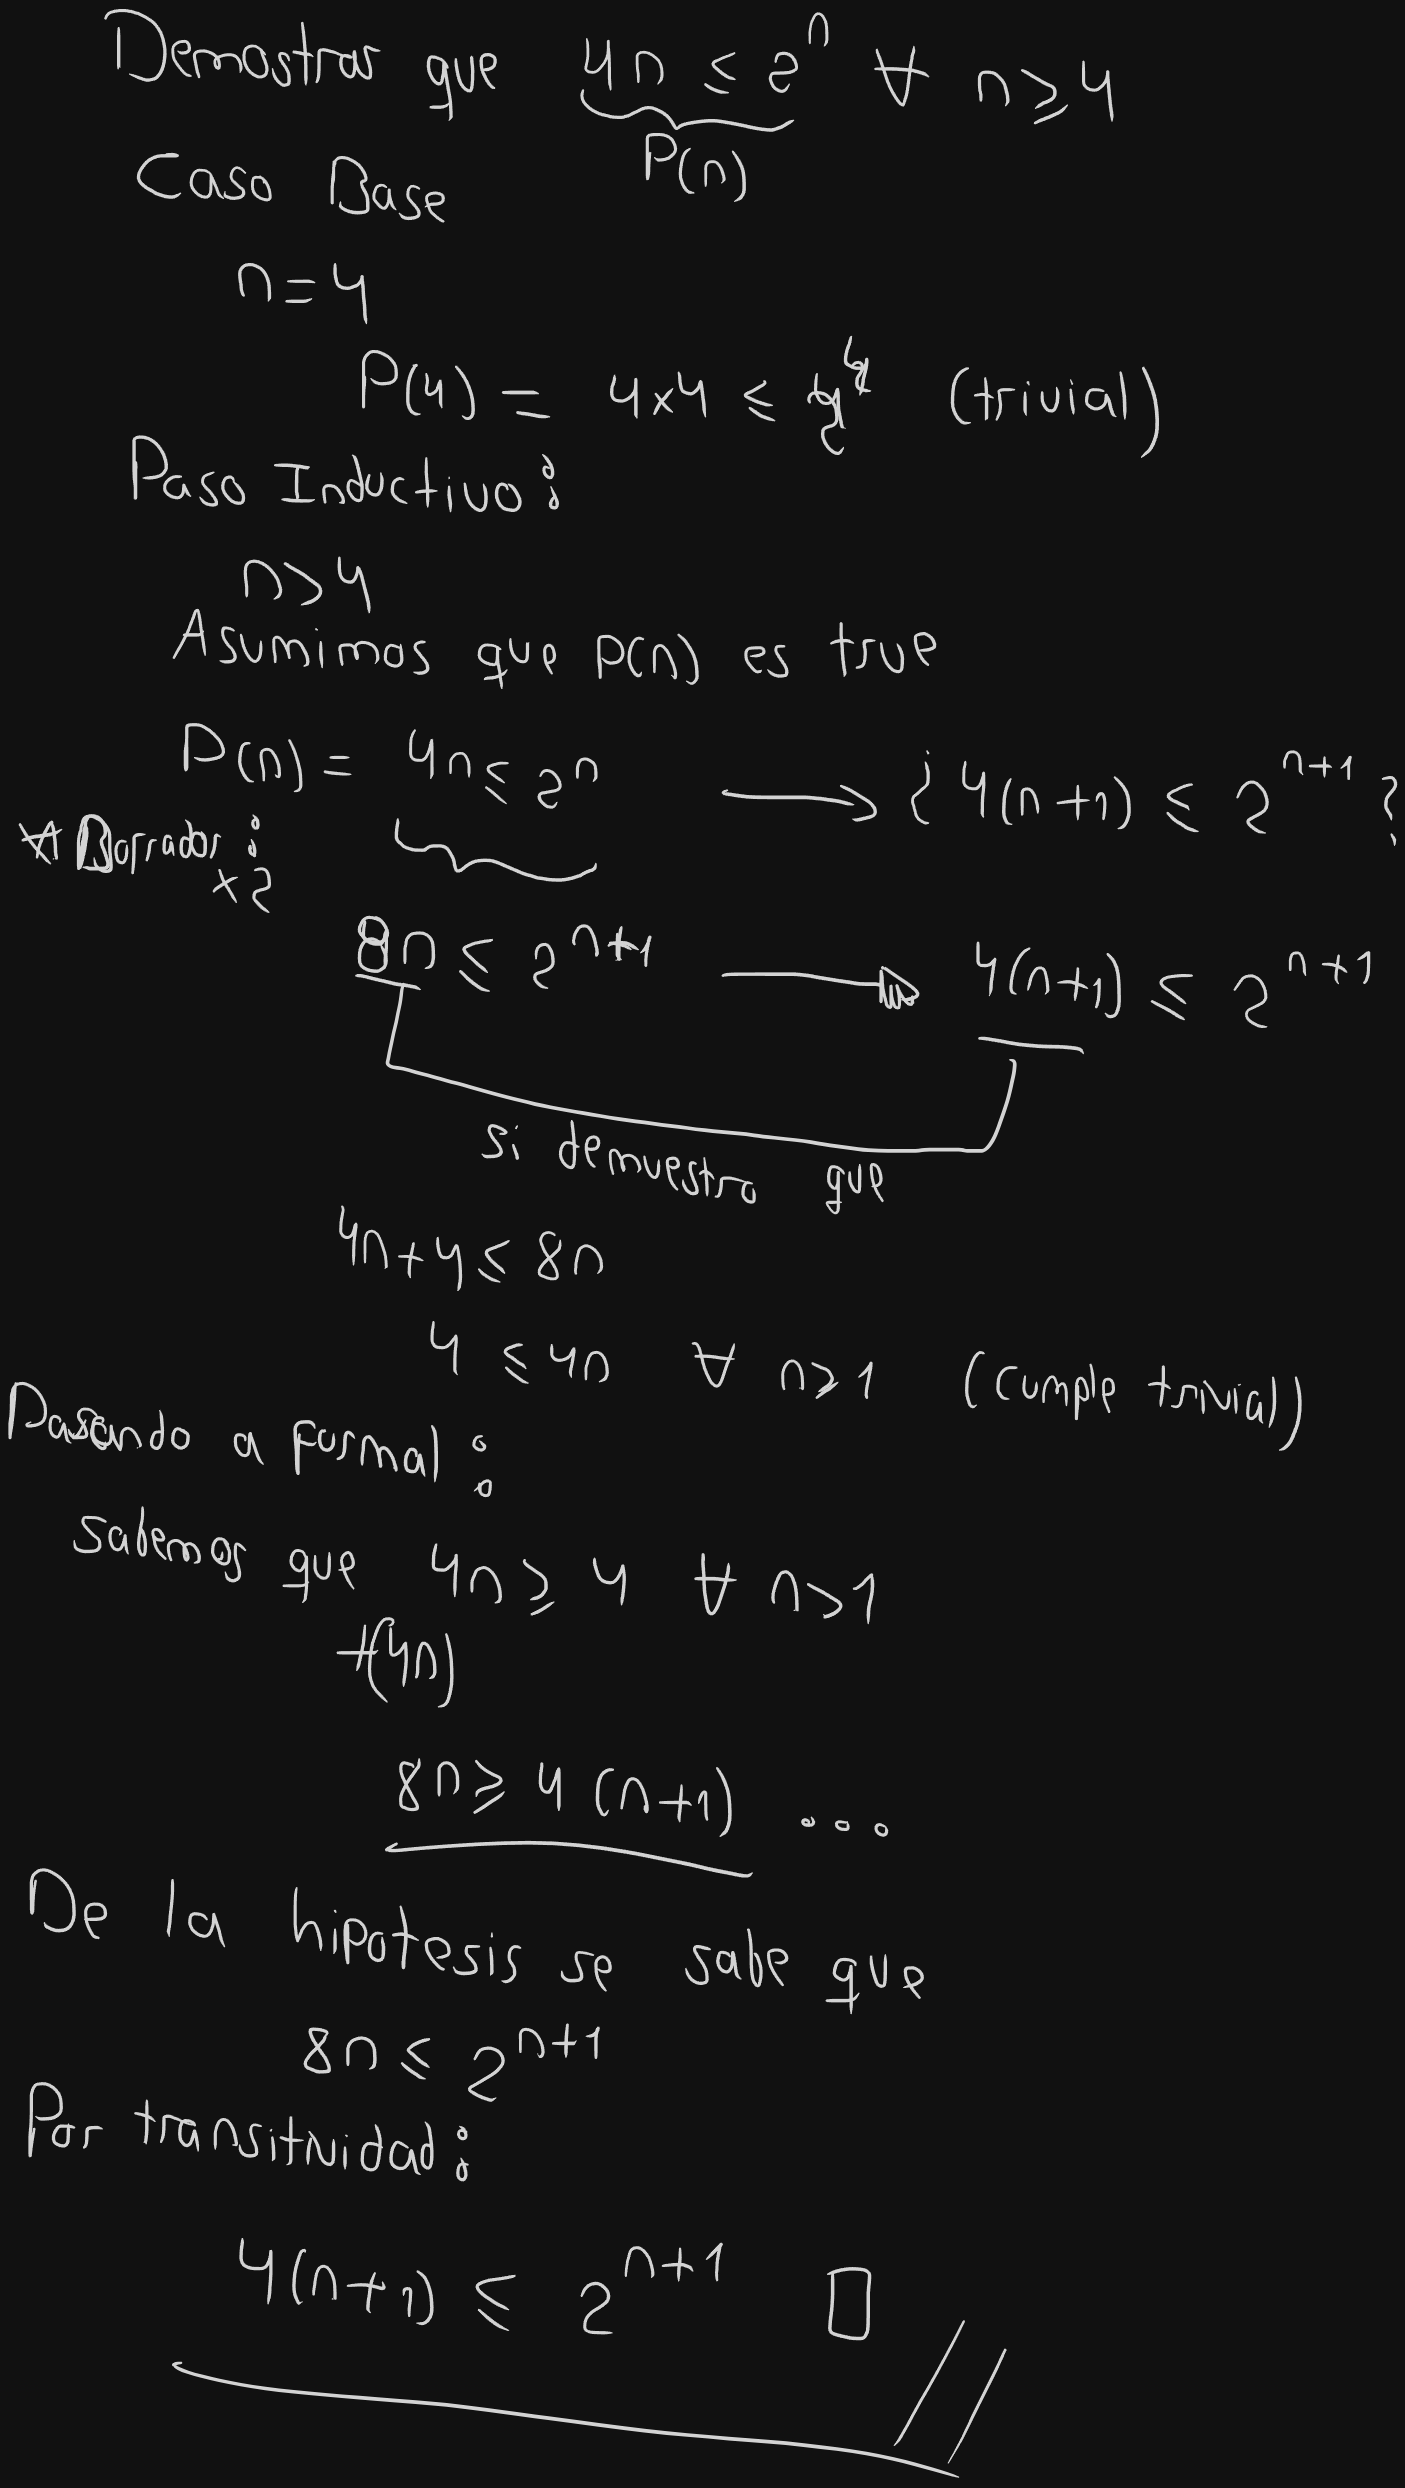 Demostrar que 4n ≤ 2^n ∀ n ≥ 4
P(n)
Caso Base
n = 4
P(4) = 4x4 ≤ 2^4 (trivial)
Paso Inductivo:
n > 4
Asumimos que P(n) es true
P(n) = 4n ≤ 2^n → ¿ 4(n+1) ≤ 2^{n+1} ?
* Borrador:
x2
8n ≤ 2^{n+1} → 4(n+1) ≤ 2^{n+1}
si demuestro que
4n+4 ≤ 8n
4 ≤ 4n ∀ n ≥ 1 (cumple trivial)
Pasando a formal:
Sabemos que 4n ≥ 4 ∀ n > 1
+(4n)
8n ≥ 4(n+1) ...
De la hipotesis se sabe que
8n ≤ 2^{n+1}
Por transitividad:
4(n+1) ≤ 2^{n+1} □